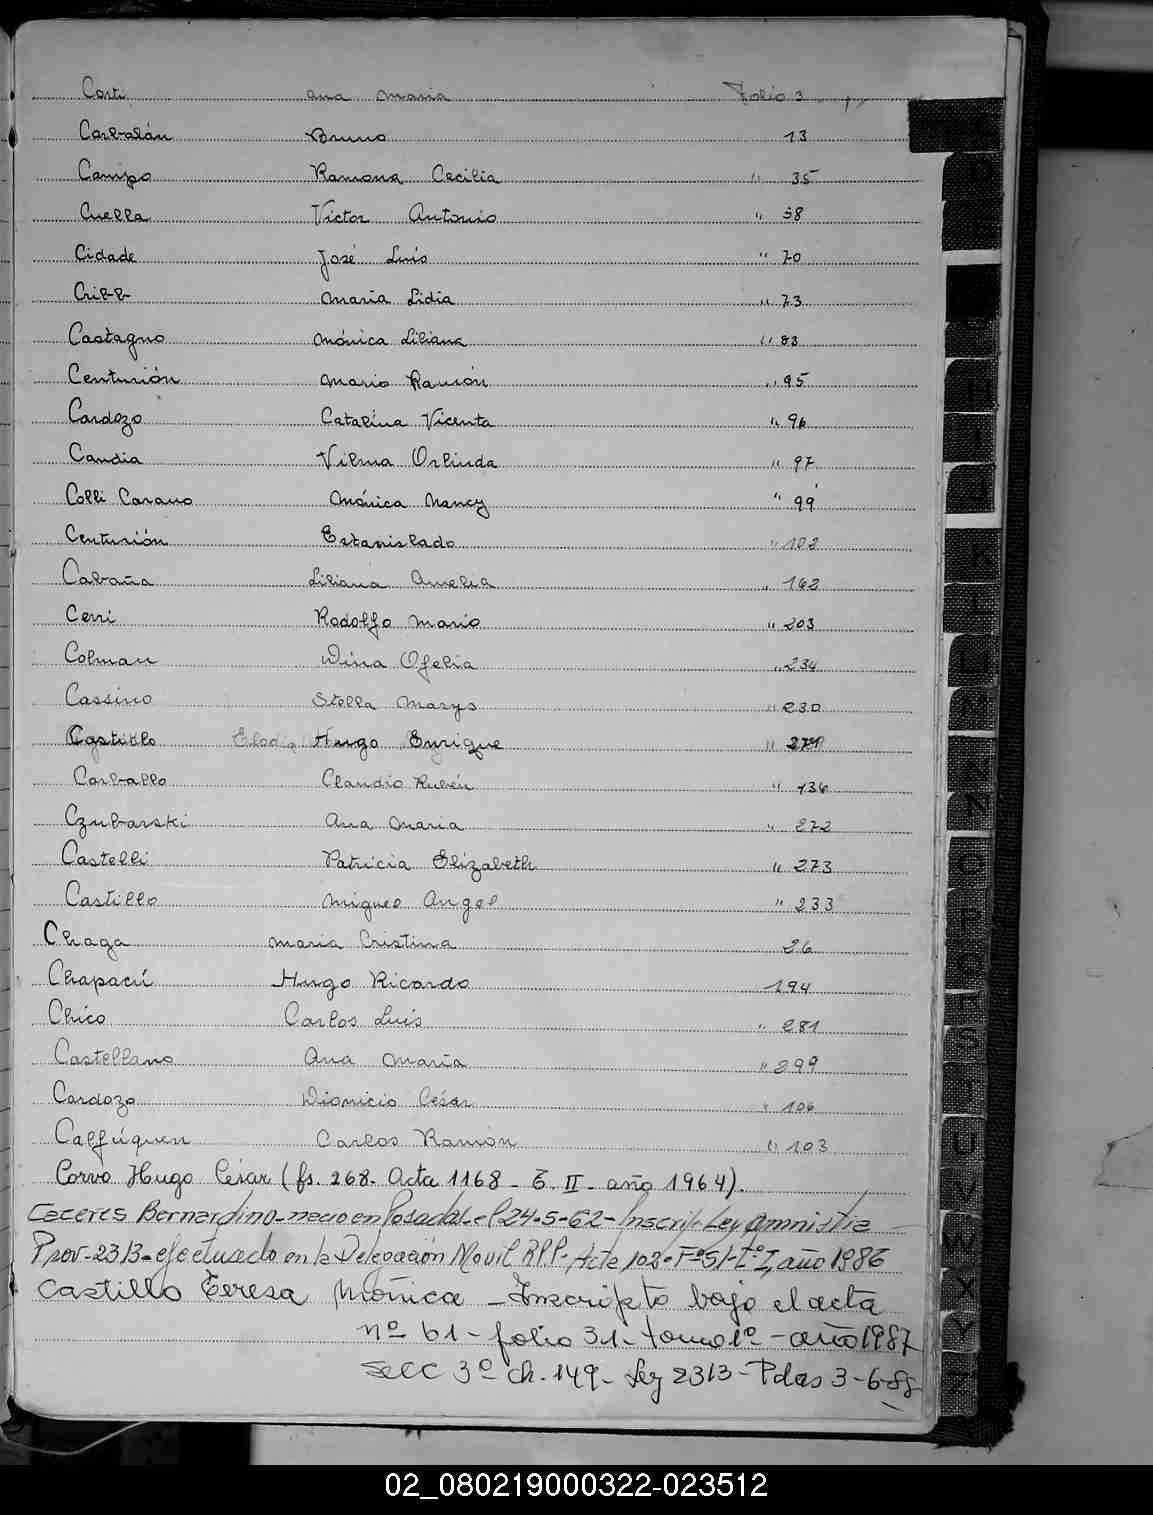 Corti Ana Maria Folio 3
Carbalán Bruno 13
Campo Ramona Cecilia " 35
Cuella Victor Antonio " 58
Cidade José Luis " 70
Cribb Maria Lidia " 73
Castagno Mónica Liliana " 83
Centurión Mario Ramón " 95
Cardozo Catalina Vicenta " 96
Candia Vilma Orlinda " 97
Colli Carano Mónica Nancy " 99
Centurión Estanislado " 102
Cabaña Liliana Amelia " 162
Cerri Rodolfo Mario " 203
Colman Dina Ofelia " 234
Cassino Stella Marys " 230
Castillo Elodia Hugo Enrique "
Carballo Claudio Rubén " 136
Czubarski Ana Maria " 272
Castelli Patricia Elizabeth " 273
Castillo Miguel Angel " 233
Chaga Maria Cristina 26
Chapacú Hugo Ricardo 194
Chico Carlos Luis " 281
Castellano Ana María " 299
Cardozo Dionicio César " 106
Calfúquen Carlos Ramón " 103
Corvo Hugo César (fs. 268. Acta 1168 - T. II - año 1964).
Caceres Bernardino - nacio en Posadas - el 24-5-62 - Inscrip. Ley Amnistia
Prov. 2313 - efectuado en la Delegación Movil R.P.P. Acta 102 - Fº 51 - Tº I, año 1986
Castillo Teresa Mónica - Inscripto bajo el acta
nº 61 - folio 31 - tomo 1º - año 1987
Secc 3º ch. 149 - Ley 2313 - Pdas 3-6-88
K
N
O
S
T
U
V
W
X
Y
02_080219000322-023512